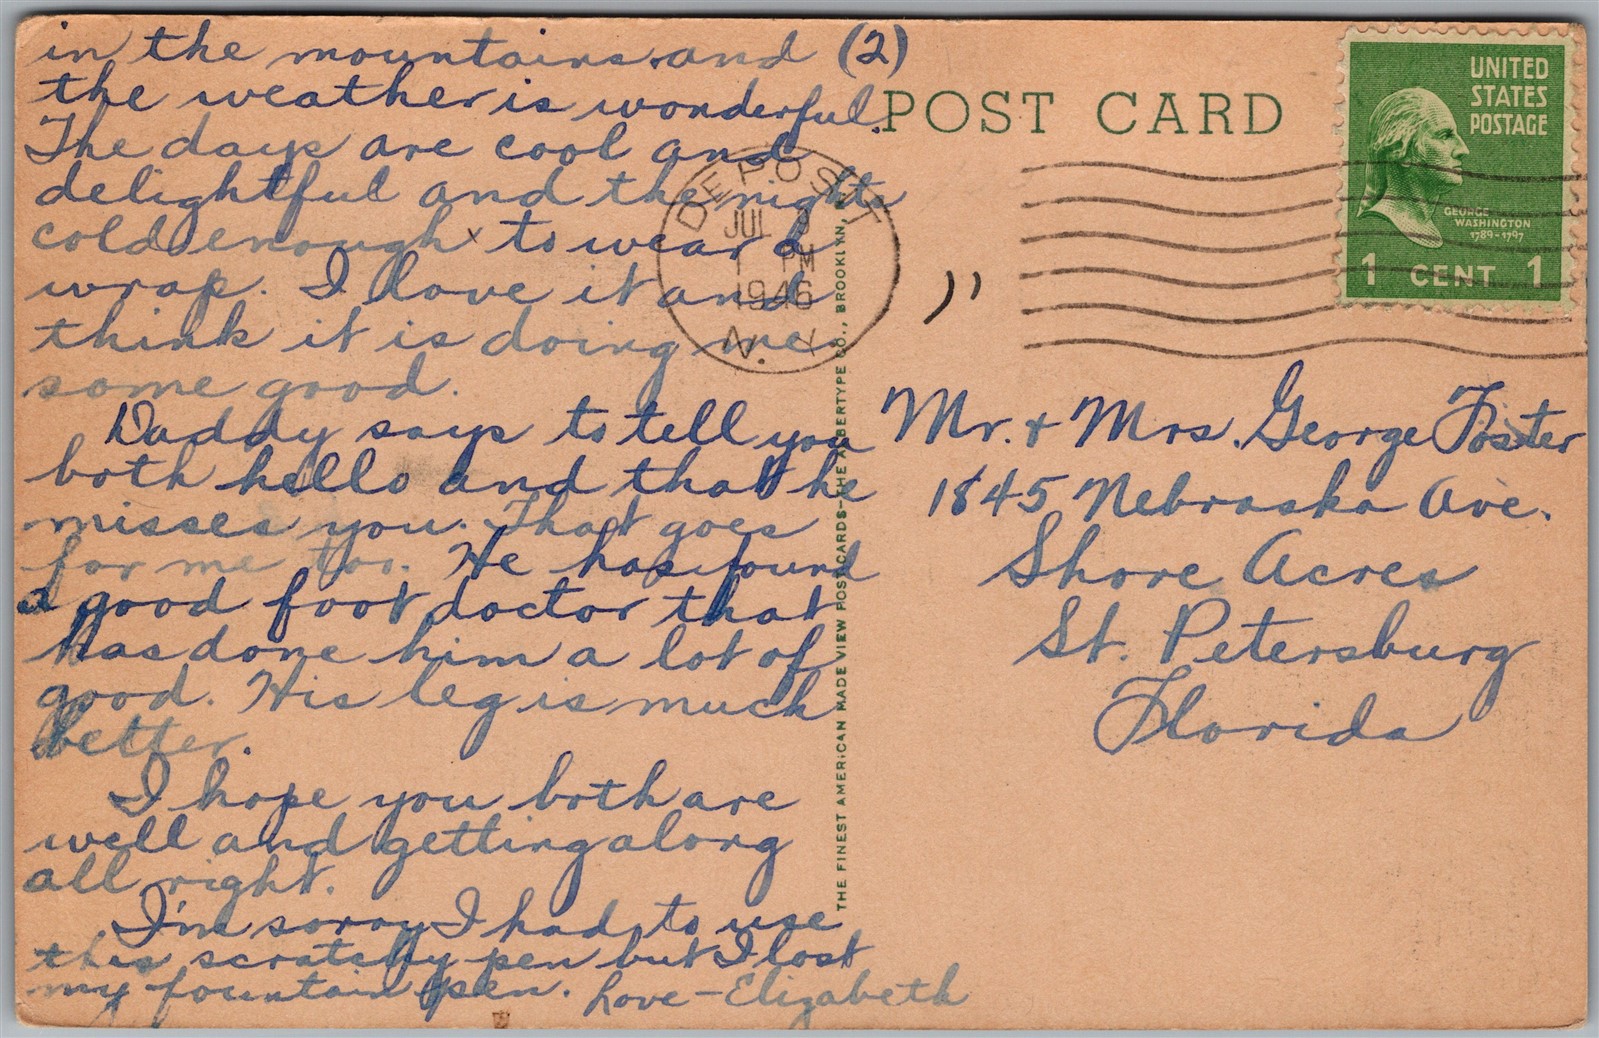 in the mountains and (2)
the weather is wonderful.
The days are cool and
delightful and the nights
cold enough to wear a
wrap. I love it and
think it is doing me
some good.
Daddy says to tell you
both hello and that he
misses you. That goes
for me too. He has found
a good foot doctor that
has done him a lot of
good. His leg is much
better.
I hope you both are
well and getting along
all right.
I'm sorry I had to use
this scratchy pen but I lost
my fountain pen. Love - Elizabeth
THE FINEST AMERICAN MADE VIEW POSTCARDS—THE ALBERTYPE CO., BROOKLYN, N.
POST CARD
DEPOSIT
JUL 9
PM
1946
N. Y.
UNITED
STATES
POSTAGE
GEORGE
WASHINGTON
1789-1797
1 CENT 1
Mr. + Mrs. George Foster
1845 Nebraska Ave.
Shore Acres
St. Petersburg
Florida